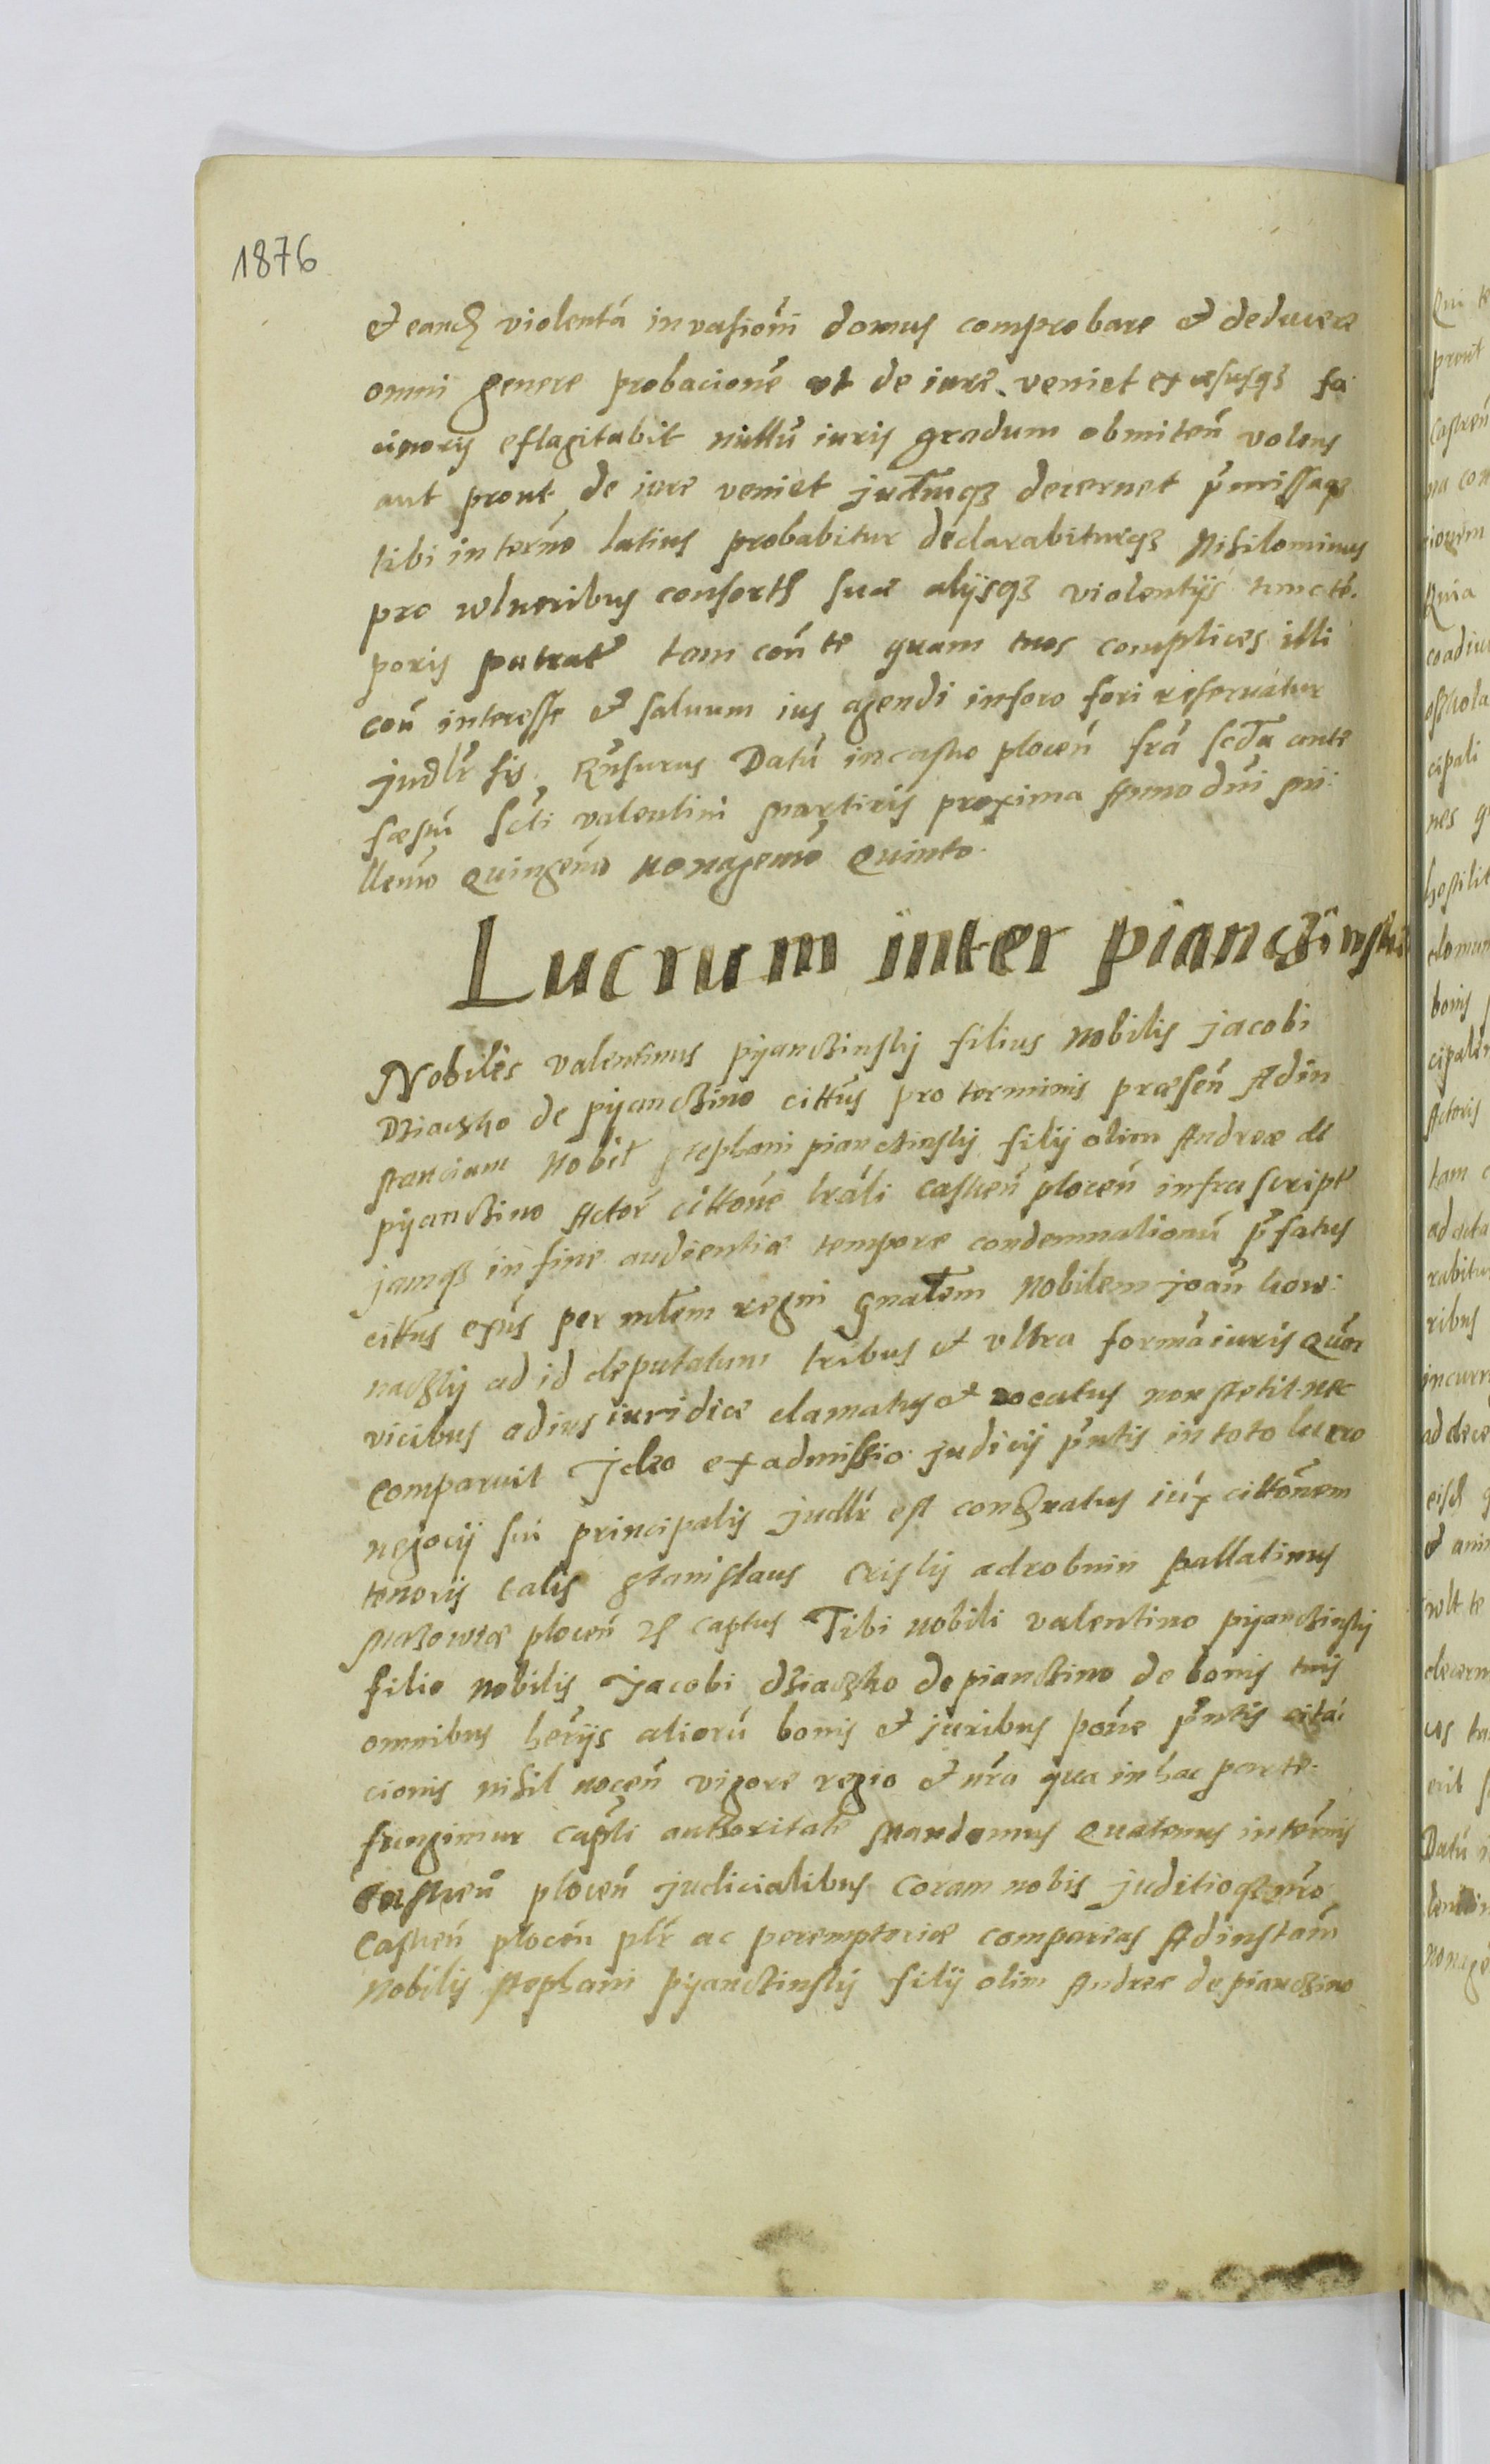 1876
et eand violentá invasioni domus comprobare et deducere
omni genere probacione ut de iure veniet excesusq3 fa
cinoris eflagitabit nullú iuris gradum obmiteń volens
aut prout de iure veniet judmq3 decernet pmissaq3
tibi in termo latius probabitur declarabiturq3 Nihilominus
pro wlneribus consortis suæ alijsq3 violentijs tunc té.
poris patrat tam coń te quam tuos complices illi
coń interesse et saluum ius agendi in foro fori reservatur
judlr sis Rnsurus Datú in castro ploceń fra scda ante
festú scti valentini Martiris proxima Anno dni Mi
llemo Quingemo Nonagemo Quinto
Lucrum inter pianczinski
Nobilis valentinus pijanczinskij filius Nobilis jacobi
Dziaczko de pijanczino cittus pro terminis præseń Ad in
stanciam Nobil stephani pianczinskij filij olim Andreæ de
pijanczino Actor cittone trali castreń ploceń infra script
jamq3 in fine audientiæ tempore condemnationú pfatus
cittus exus per mlem regni gnalem Nobilem joań
naczkij ad id deputatum tribus et vltra formá iuris Quor
vicibus ad ius iuridice clamatus et vocatus non stetit nec
comparuit Jdeo ex admissio judicij pntis in toto lucro
negocij sui principalis judlr est condnatus iux cittonem
tenoris talis Stanislaus criskij a drobnin pallatinus
Mazowiæ ploceń captus Tibi nobili valentino pijanczinskij
filio nobilis Jacobi dziaczko de pianczino de bonis tuis
omnibus herijs aliorú bonis et juribus pone pntis cita
cionis nihil noceń vigore regio et nra qua in hac parte
fungimur capli authoritate Mandamus Quatenus in termis
castreń ploceń judicialibus coram nobis juditioq3 nro
castreń ploceń plr ac peremptorie compareas Ad instań
Nobilis stephani pijanczinskij filij olim Andreæ de pianczino